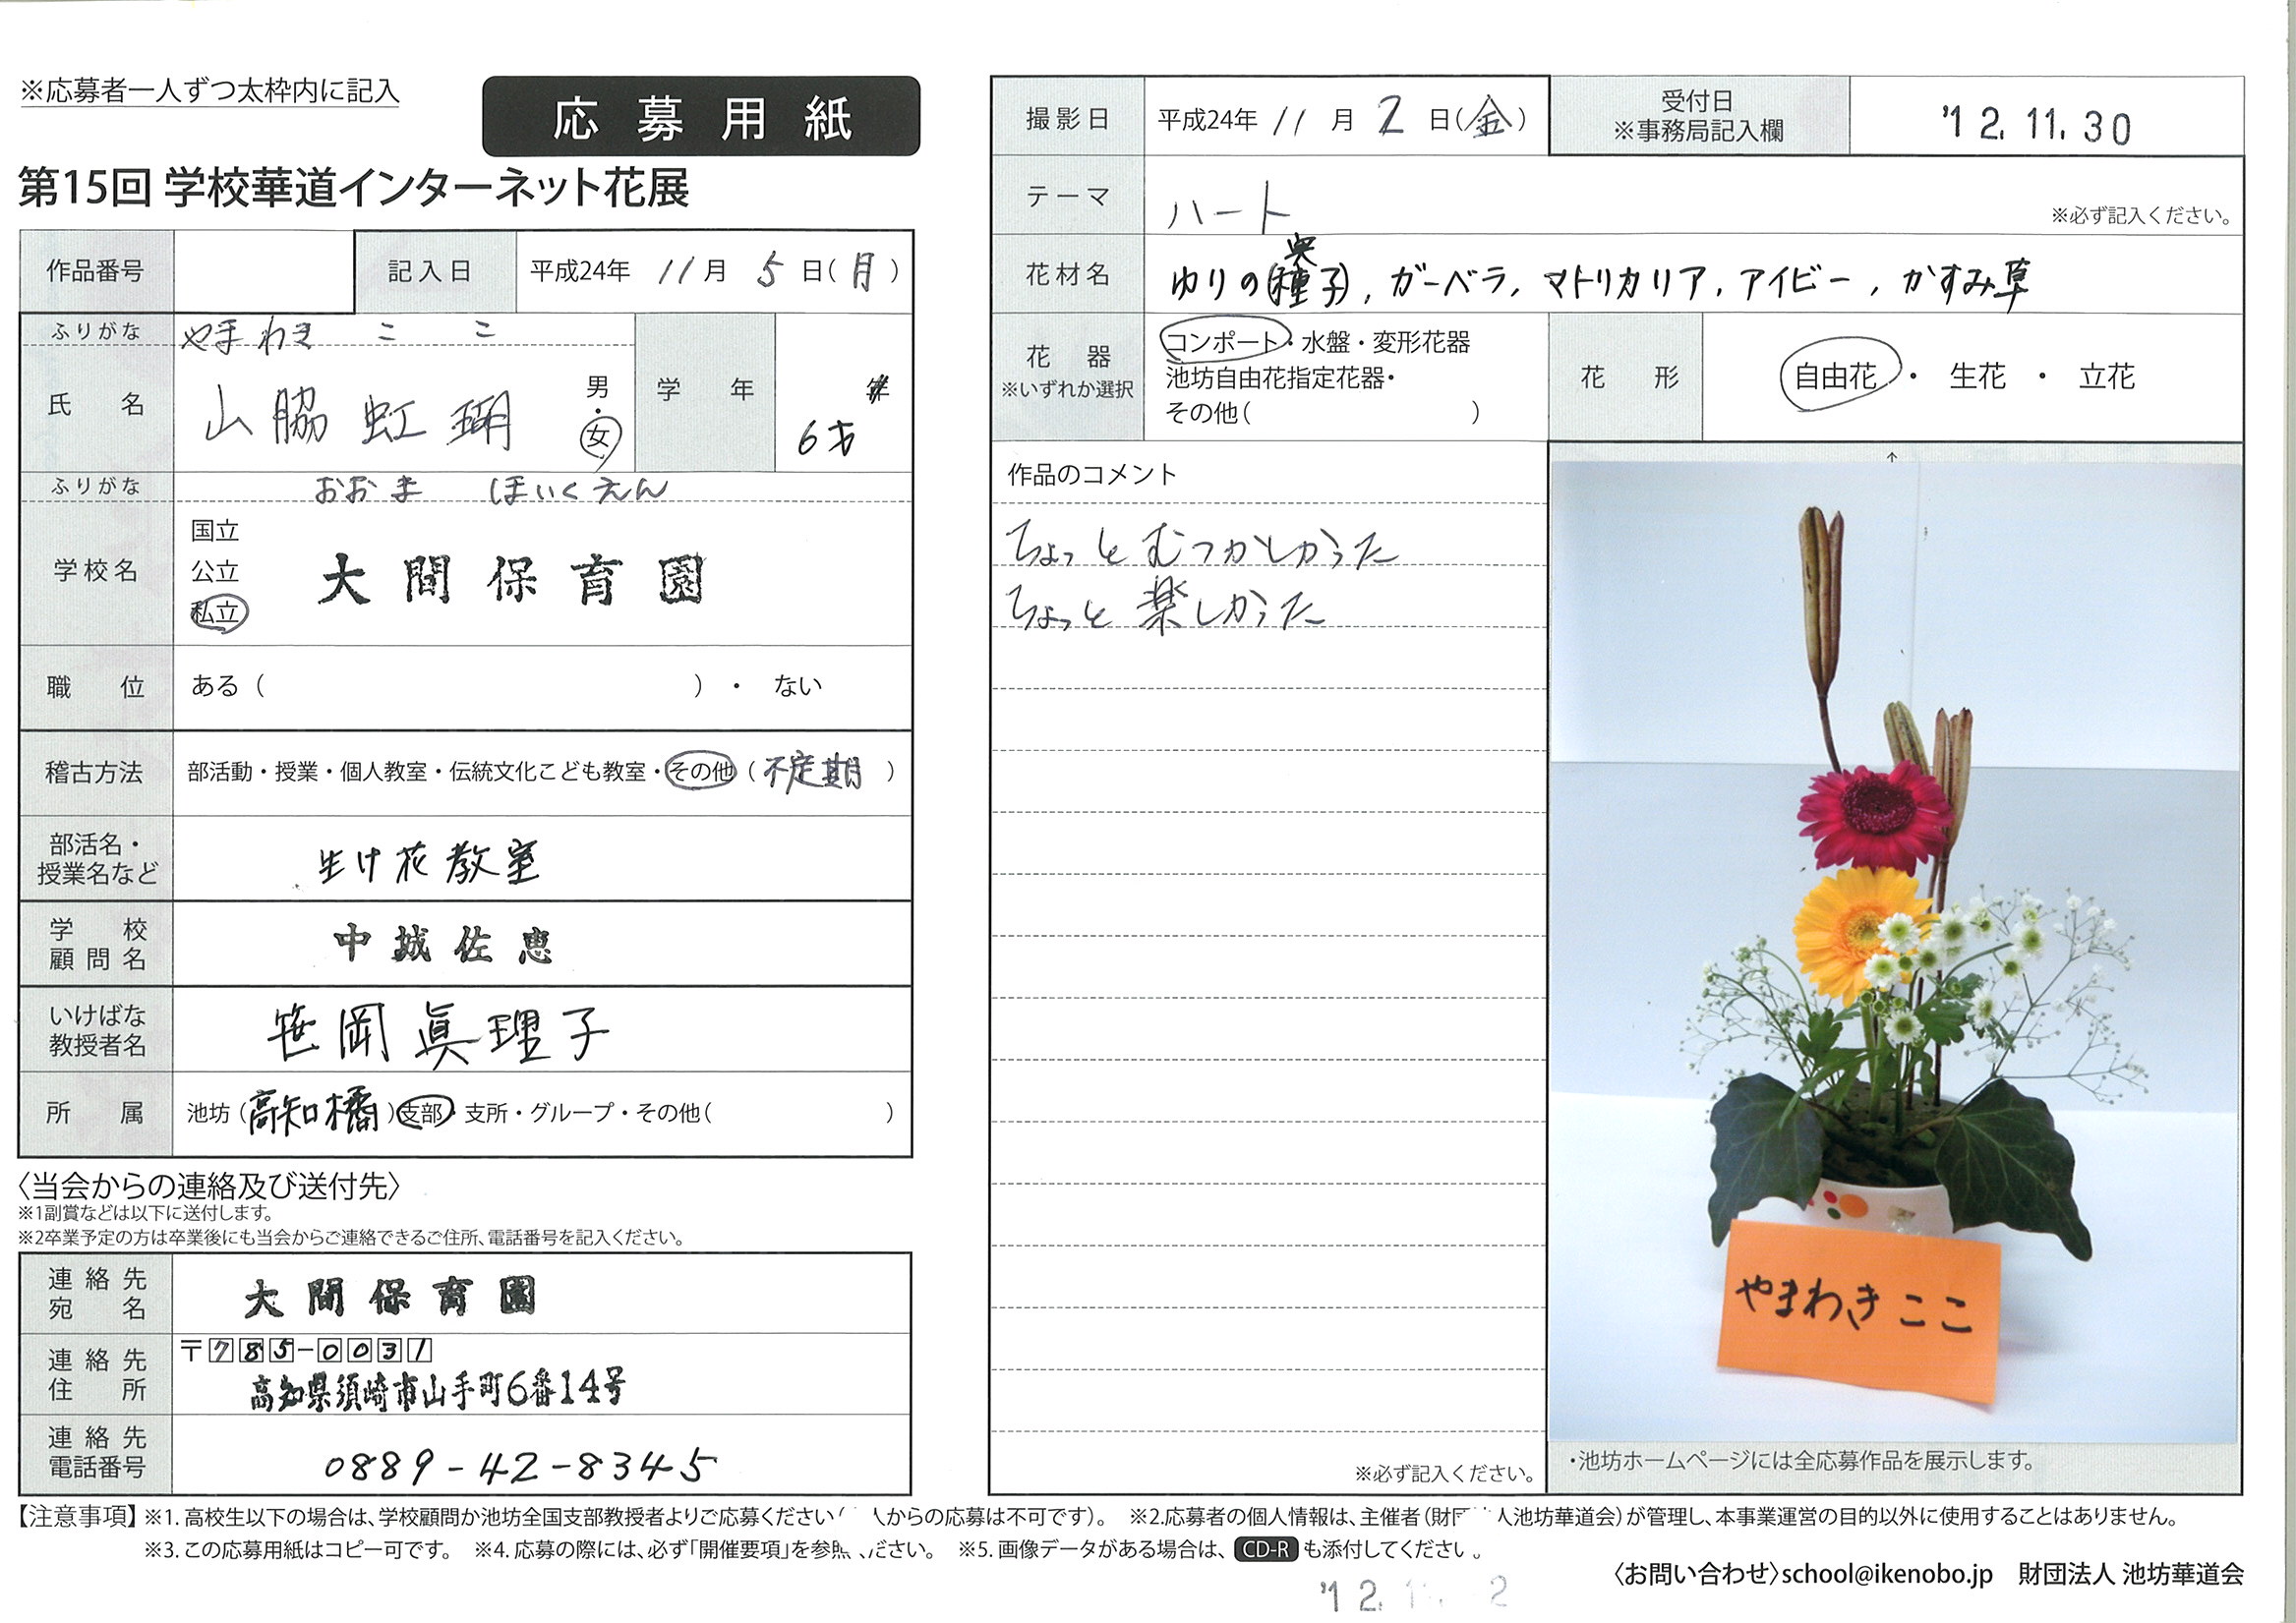 ※応募者一人ずつ太枠内に記入
応募用紙
第15回 学校華道インターネット花展
作品番号
記入日 平成24年 11月 5日(月)
ふりがな やまわき ここ
氏名 山脇 虹瑚 男・女
学年 6才
ふりがな おおま ほいくえん
学校名 国立 公立 私立 大間保育園
職位 ある( )・ ない
稽古方法 部活動・授業・個人教室・伝統文化こども教室・その他(不定期)
部活名・授業名など 生け花教室
学校顧問名 中城佐恵
いけばな教授者名 笹岡眞理子
所属 池坊(高知橘)支部・支所・グループ・その他( )
〈当会からの連絡及び送付先〉
※1副賞などは以下に送付します。
※2卒業予定の方は卒業後にも当会からご連絡できるご住所、電話番号を記入ください。
連絡先宛名 大間保育園
連絡先住所 〒785-0031
高知県須崎市山手町6番14号
連絡先電話番号 0889-42-8345
撮影日 平成24年 11月 2日(金)
受付日 ※事務局記入欄 '12.11.30
テーマ ハート ※必ず記入ください。
実
花材名 ゆりの(種子), ガーベラ, マトリカリア, アイビー, かすみ草
花器 ※いずれか選択 コンポート・水盤・変形花器
池坊自由花指定花器・
その他( )
花形 自由花 ・ 生花 ・ 立花
作品のコメント
ちょっと むつかしかった
ちょっと 楽しかった
※必ず記入ください。
↑
やまわき ここ
・池坊ホームページには全応募作品を展示します。
【注意事項】※1. 高校生以下の場合は、学校顧問か池坊全国支部教授者よりご応募ください( 人からの応募は不可です)。 ※2.応募者の個人情報は、主催者(財団 人池坊華道会)が管理し、本事業運営の目的以外に使用することはありません。
※3. この応募用紙はコピー可です。 ※4. 応募の際には、必ず「開催要項」を参照ください。 ※5. 画像データがある場合は、CD-Rも添付してください。
〈お問い合わせ〉school@ikenobo.jp 財団法人 池坊華道会
'12.